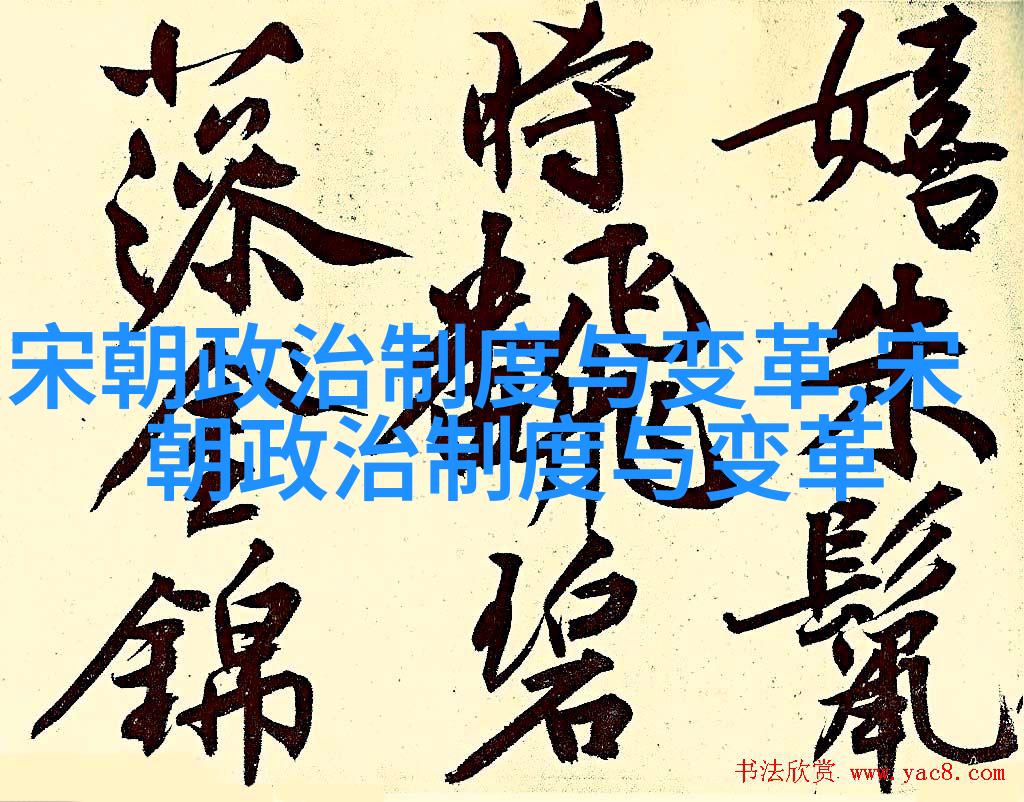 嬉朱鬣
時飜碧
藻金錦
宋朝政治制度与变革,宋
朝政治制度与变革
书法欣赏 www.yac8.com